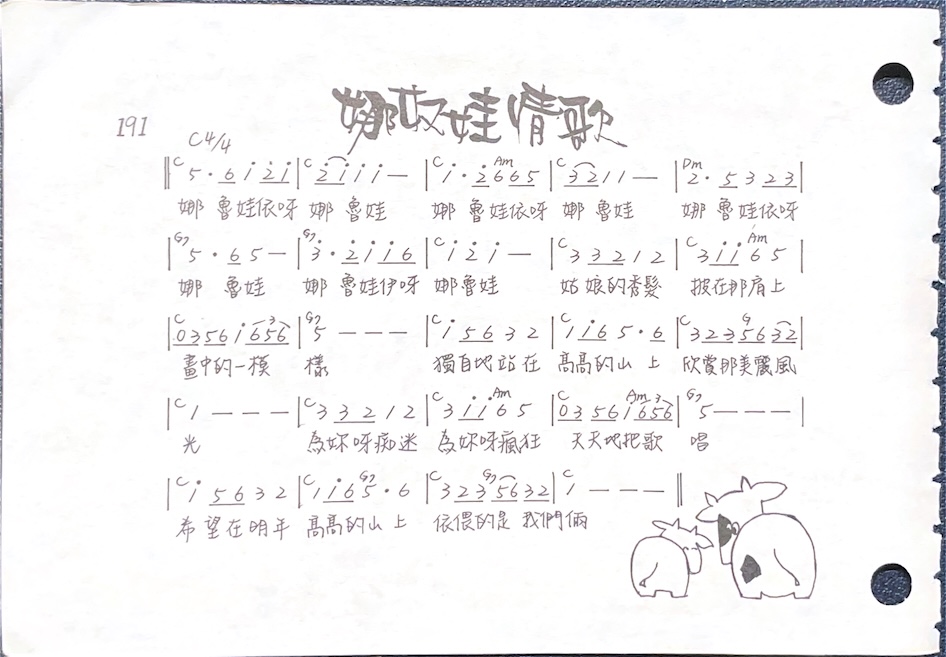 191
娜奴娃情歌
C4/4
‖C 5 · 6 i 2̇ i |C 2̇ i i i — |C i · 2̇ Am 6 6 5 |C 3 2 1 1 — |Dm 2 · 5 3 2 3|
娜 魯娃依呀 娜 魯娃 娜 魯娃依呀 娜 魯娃 娜 魯娃依呀
|G7 5 · 6 5 — |G7 3̇ · 2̇ i i 6 |C i 2̇ i — |C 3 3 2 1 2 |C 3 i i Am 6 5 |
娜 魯娃 娜 魯娃伊呀 娜魯娃 姑娘的秀髮 披在那肩上
|C 0 3 5 6 i 6 5 6 (3) |G7 5 — — — |C i 5 6 3 2 |C 1 i 6 5 · 6 |C 3 2 3 G 5 6 3 2|
畫中的一模 樣 獨自地站在 高高的山上 欣賞那美麗風
|C 1 — — — |C 3 3 2 1 2 |C 3 i i Am 6 5 |C 0 3 5 6 i Am 6 5 6 (3) |G7 5 — — — |
光 為妳呀痴迷 為妳呀瘋狂 天天地把歌 唱
|C i 5 6 3 2 |C 1 i 6 G7 5 · 6 |C 3 2 3 G7 5 6 3 2 |C 1 — — — ‖
希望在明年 高高的山上 依偎的是 我們倆